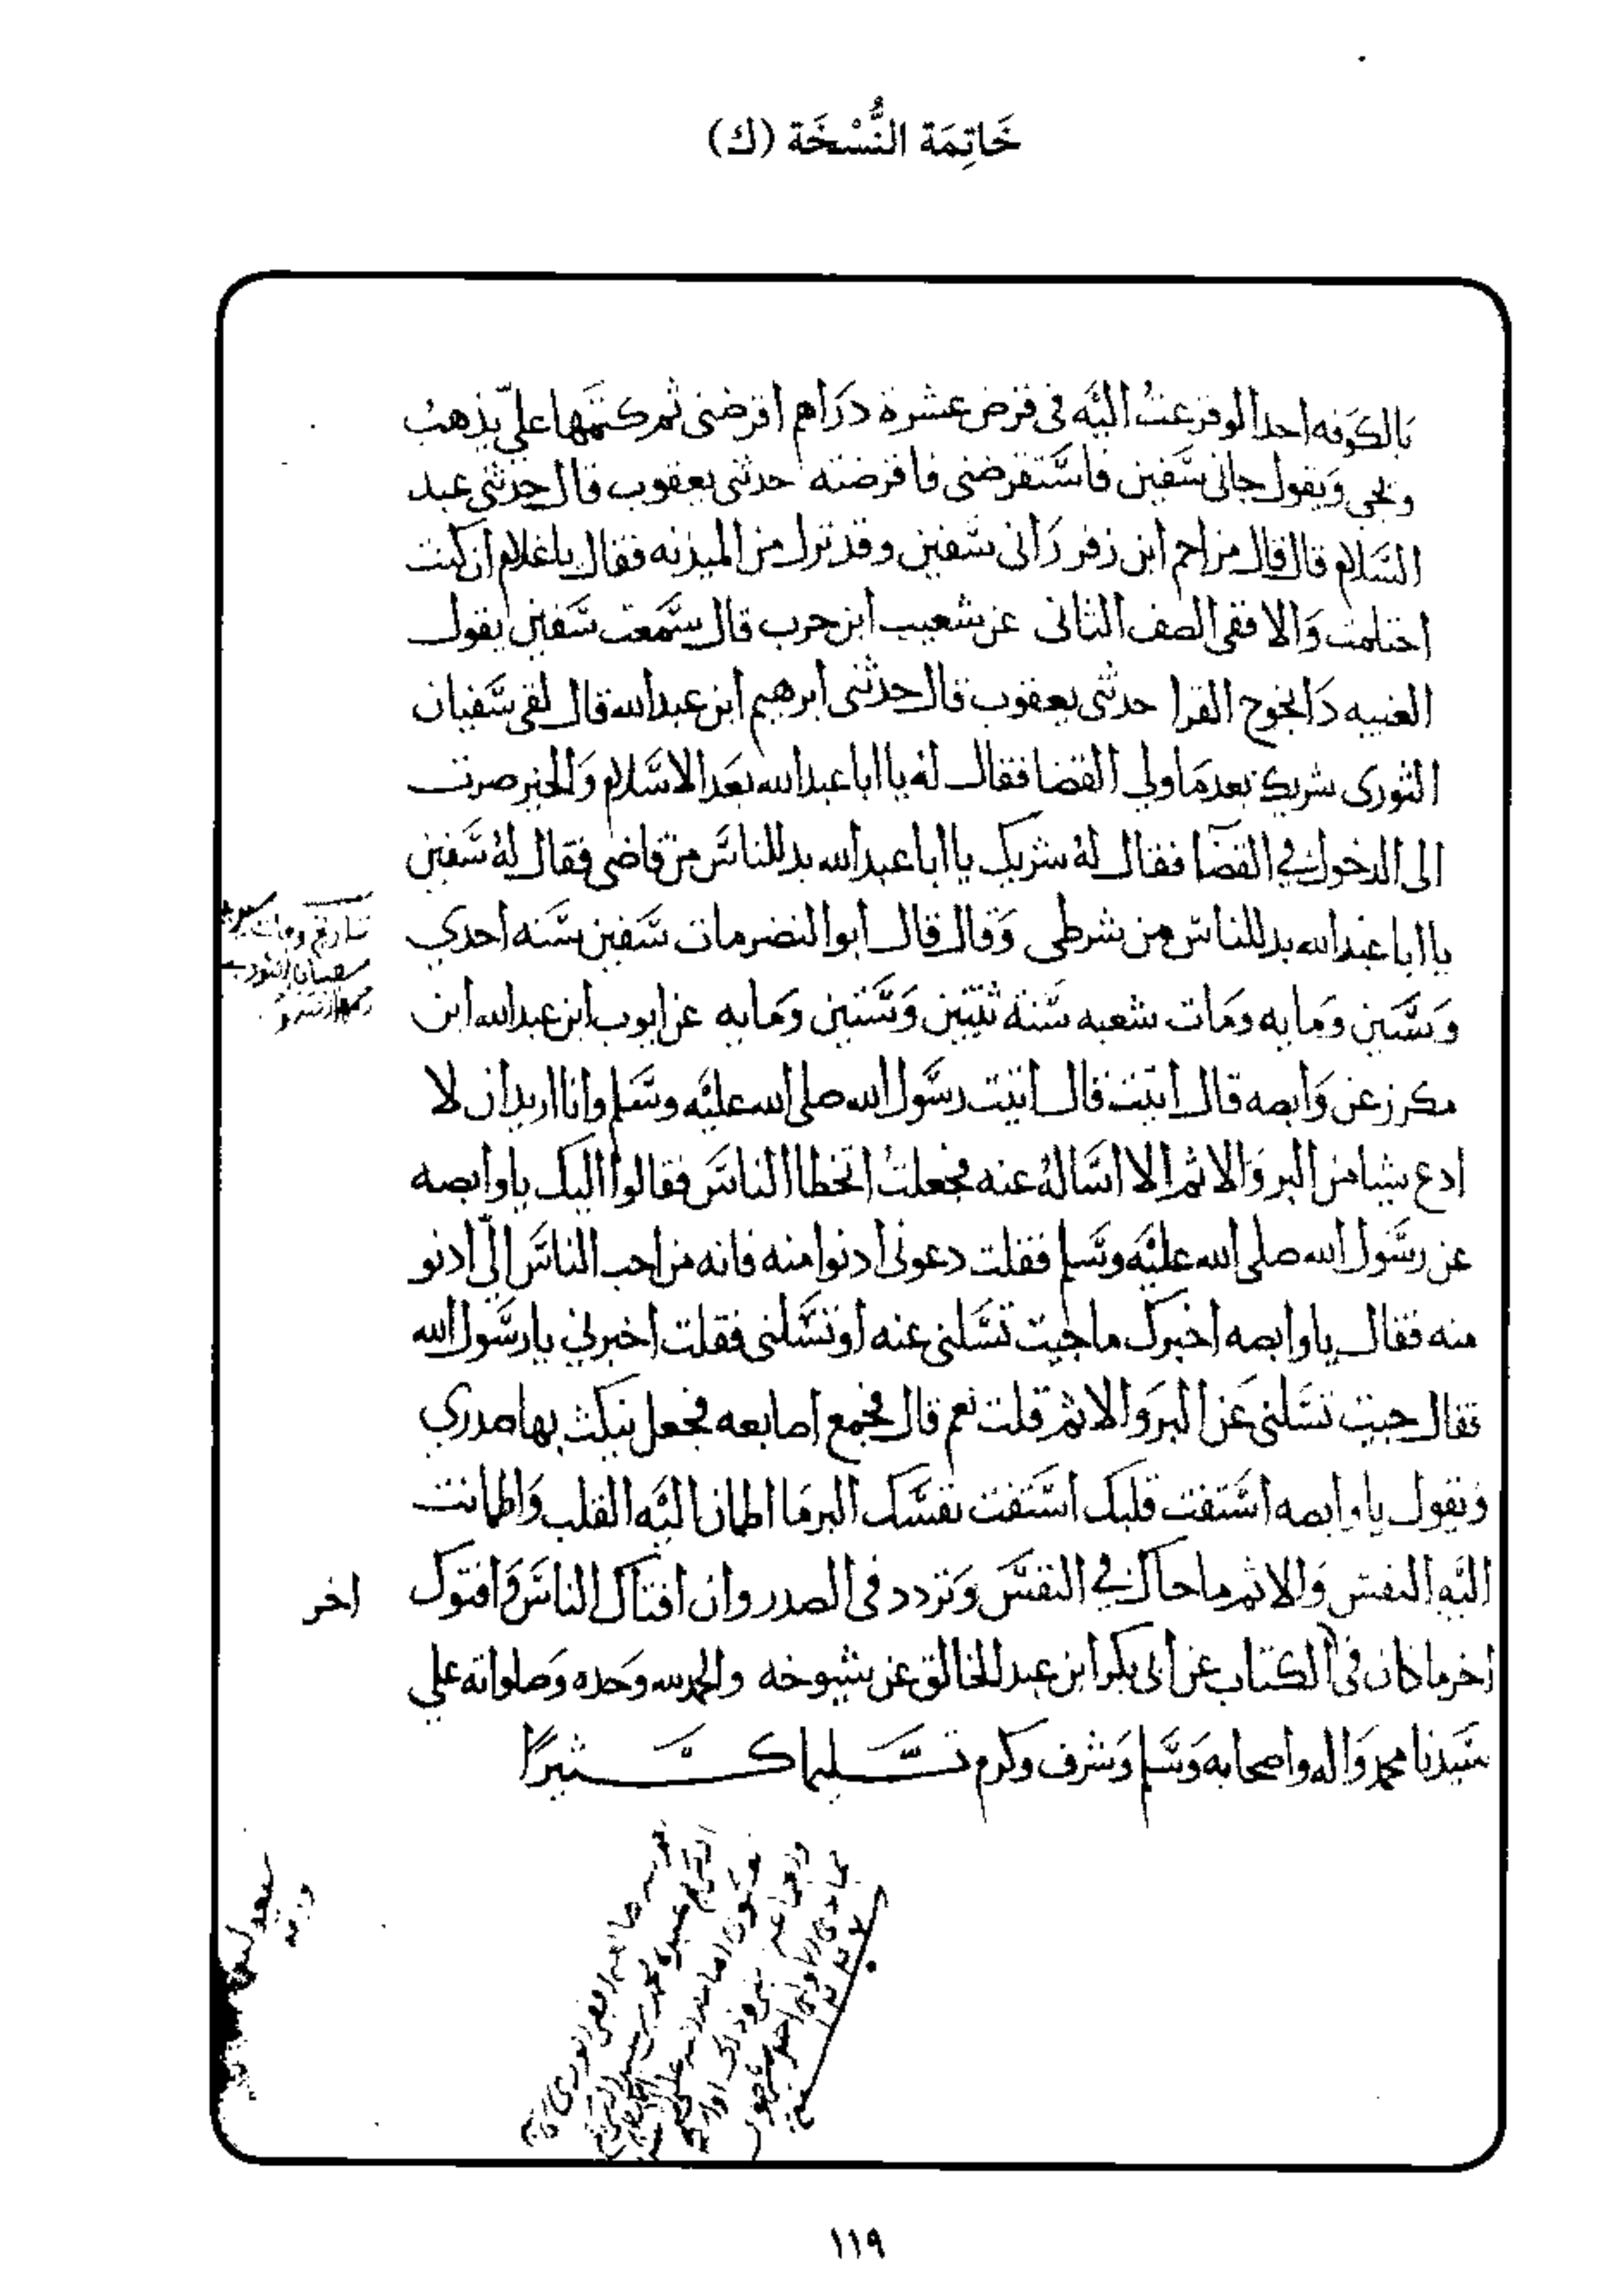 خَاتِمَة النُّسْخَة (ك)
بالكوفه احدا لو فزعتُ اليه فى قرض عشرة دراهم اقرضنى ثم كتمها علىّ يذهب
ويجى ويقول جانى سفين فاستقرضنى فاقرضته حدثنى يعقوب قال حدثنى عبد
السلام قال قال مزاحم ابن زفر رانى سفين وقد نزل من الميذنه فقال يا غلام ان كنت
احتلمت والا ففى الصف الثانى عن شعيب ابن حرب قال سمعت سفين يقول
الغيبه القرا حدثنى يعقوب قال حدثنى ابرهيم ابن عبدالله قال لقى سفيان
الثورى شريك بعد ما ولي القضا فقال له يا ابا عبدالله بعد الاسلام والخير صرت
الى الدخول في القضا فقال لهُ شريك يا ابا عبدالله بد للناس من قاضى فقال لهُ سفين
يا ابا عبدالله بد للناس من شرطى وقال قال ابو النضر مات سفين سنه احدي
وستين ومايه ومات شعبه سنة ثنتين وستين ومايه عن ايوب ابن عبدالله ابن
مكرز عن وابصه قال اتيت قال اتيت رسول الله صلى الله عليه وسلم وانا اريد ان لا
ادع شيا من البر والاثم الا اسالهُ عنه فجعلتُ اتخطا الناس فقالوا اليك يا وابصه
عن رسول الله صلى الله عليه وسلم فقلت دعونى ادنوا منه فانه من احب الناس اليّ ادنو
منه فقال يا وابصه اخبرك ما جيت تسلنى عنه او تسلنى فقلت اخبرني يا رسول الله
فقال جيت تسلنى عن البر والاثم قلت نعم قال فجمع اصابعه فجعل ينكث بها صدري
ويقول يا وابصه استفت قلبك استفت نفسك البر ما اطمان اليه القلب واطمانت
اليه النفس والاثم ما حاك في النفس وتردد فى الصدر وان افتاك الناس وافتوك
اخر
اخر ما كان فى الكتاب عن ابى بكر ابن عبد الخالق عن شيوخه والحمد لله وحده وصلواته على
سيدنا محمد واله واصحابه وسلم وشرف وكرم تسليما كثيرًا
تاريخ وفات
سفيان الثورى
١١٩